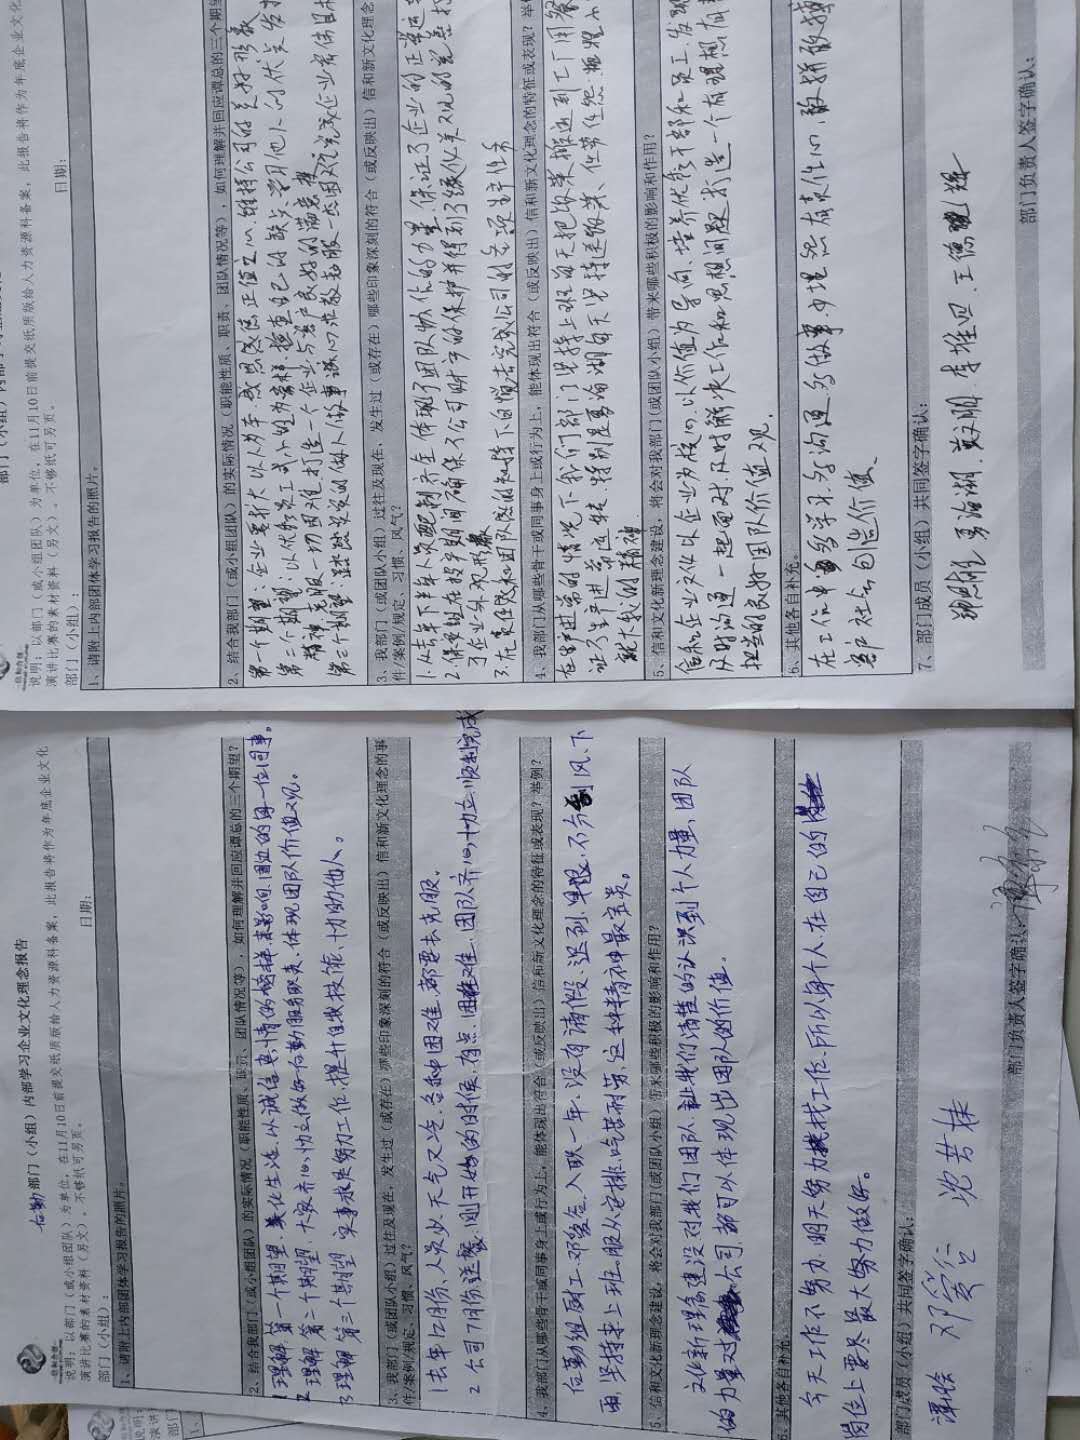 部门（小组）内部学习企业文化理念报告
说明：以部门（或小组团队）为单位，在11月10日前提交纸质版给人力资源科备案，此报告将作为年底企业文化
演讲比赛的素材资料（另文）。不够纸可另页。
部门（小组）： 日期：
1、请附上内部团体学习报告的照片。
2、结合我部门（或小组团队）的实际情况（职能性质、职责、团队情况等），如何理解并回应谭总的三个期望？
1 理解第一个期望、美化生活、以诚信真情的榜样来影响周边的每一位同事。
2 理解第二个期望、大家齐心协立做好后勤服务类、体现团队价值观。
3 理解第三个期望 实事求是努力工作、提升自我技能、协助他人。
3、我部门（或团队小组）过往及现在，发生过（或存在）哪些印象深刻的符合（或反映出）信和新文化理念的事
件/案例/规定、习惯、风气？
1 去年12月份、人员少天气又冷、各种困难都要去克服。
2 公司7月份送餐、刚开始的时候、有点困难、团队齐心协立、顺利完成
4、我部门从哪些骨干或同事身上或行为上，能体现出符合（或反映出）信和新文化理念的特征或表现？举例？
后勤组厨工、邓贤全、入职一年、没有请假、迟到、早退、不分刮风、下
雨、坚持来上班、服从安排、吃苦耐劳、这种精神最宝贵。
5、信和文化新理念建设，将会对我部门（或团队小组）带来哪些积极的影响和作用？
文化新理念建设对我们团队、让我们清楚的认识到个人力量、团队
的力量对公司都可以体现出团队的价值。
6、其他各自补充。
今天工作不努力、明天努力找工作、所以每个人在自己的
岗位上要尽最大努力做好。
部门成员（小组）共同签字确认：
部门负责人签字确认：
说明：以部门（或小组团队）为单位，在11月10日前提交纸质版给人力资源科备案，此报告将作为年底企业文化
演讲比赛的素材资料（另文）。不够纸可另页。
部门（小组）： 日期：
1、请附上内部团体学习报告的照片。
2、结合我部门（或小组团队）的实际情况（职能性质、职责、团队情况等），如何理解并回应谭总的三个期望
第一个期望：企业要扩大以人为本、感恩感德正值之心、维持公司的良好形象
第二个期望：以优秀员工或小的为榜样、检查自己的缺点、学习他人的优点发扬
精神克服一切困难、打造一个企业与客户良好的满意度
第三个期望：踏踏实实的做人做事、诚心
3、我部门（或团队小组）过往及现在，发生过（或存在）哪些印象深刻的符合（或反映出）信和新文化理念
件/案例/规定、习惯、风气？
1、从去年下半年人员配制齐全、体现了团队协作的力量、保证了企业的正常运
2、保安组在授予期间确保了公司财产的保护并得到了绿化美观的
了企业外观形象
3、在责任感和团队感的和持下自觉去完成公司的各项生产任务
4、我部门从哪些骨干或同事身上或行为上，能体现出符合（或反映出）信和新文化理念的特征或表现？举例
在生产进常的情况下我们部门坚持上班每天把饭菜搬运到工厂用餐
证了生产进常运转
就大我的精神
5、信和文化新理念建设，将会对我部门（或团队小组）带来哪些积极的影响和作用？
信和企业文化以企业为核心、以价值为导向、培养优秀干部和员工、发现
及时沟通、一起面对、及时解决工作和思想问题、打造一个有理想、有
担当的良好团队价值观。
6、其他各自补充。
在工作中多学习、多沟通、多做事
客户社会创造价值、
7、部门成员（小组）共同签字确认：
部门负责人签字确认：